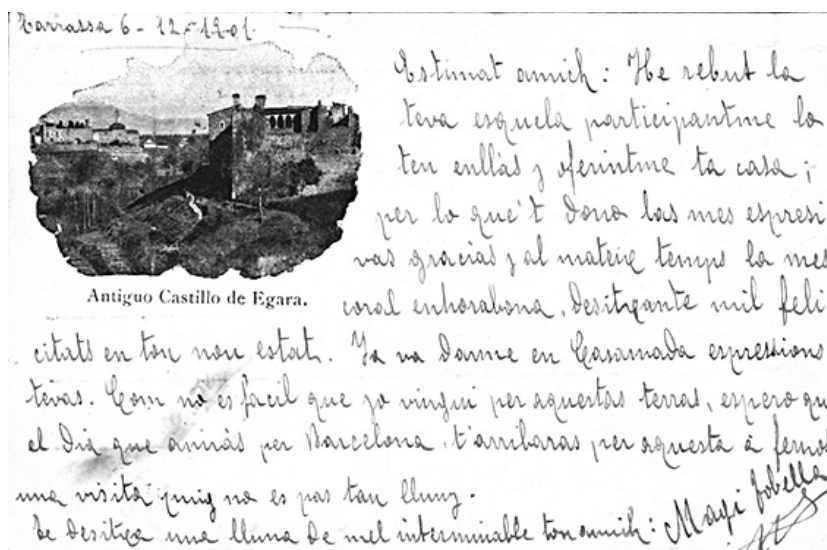 Tarrassa 6 - 12 - 1901.
Estimat amich: He rebut la
teva esquela participantme lo
teu enllás y oferintme ta casa;
per lo que't dono las mes espresi
vas gracias y al mateix temps la mes
coral enhorabona, desitjante mil feli
Antiguo Castillo de Egara.
citats en ton nou estat. Ja va darme en Casamada espressions
tevas. Com no es facil que jo vingui per aquestas terras, espero que
el dia que aniràs per Barcelona, t'arribaras per aquesta á fernos
una visita puig no es pas tan lluny.
Te desitja una lluna de mel interminable ton amich: Magí